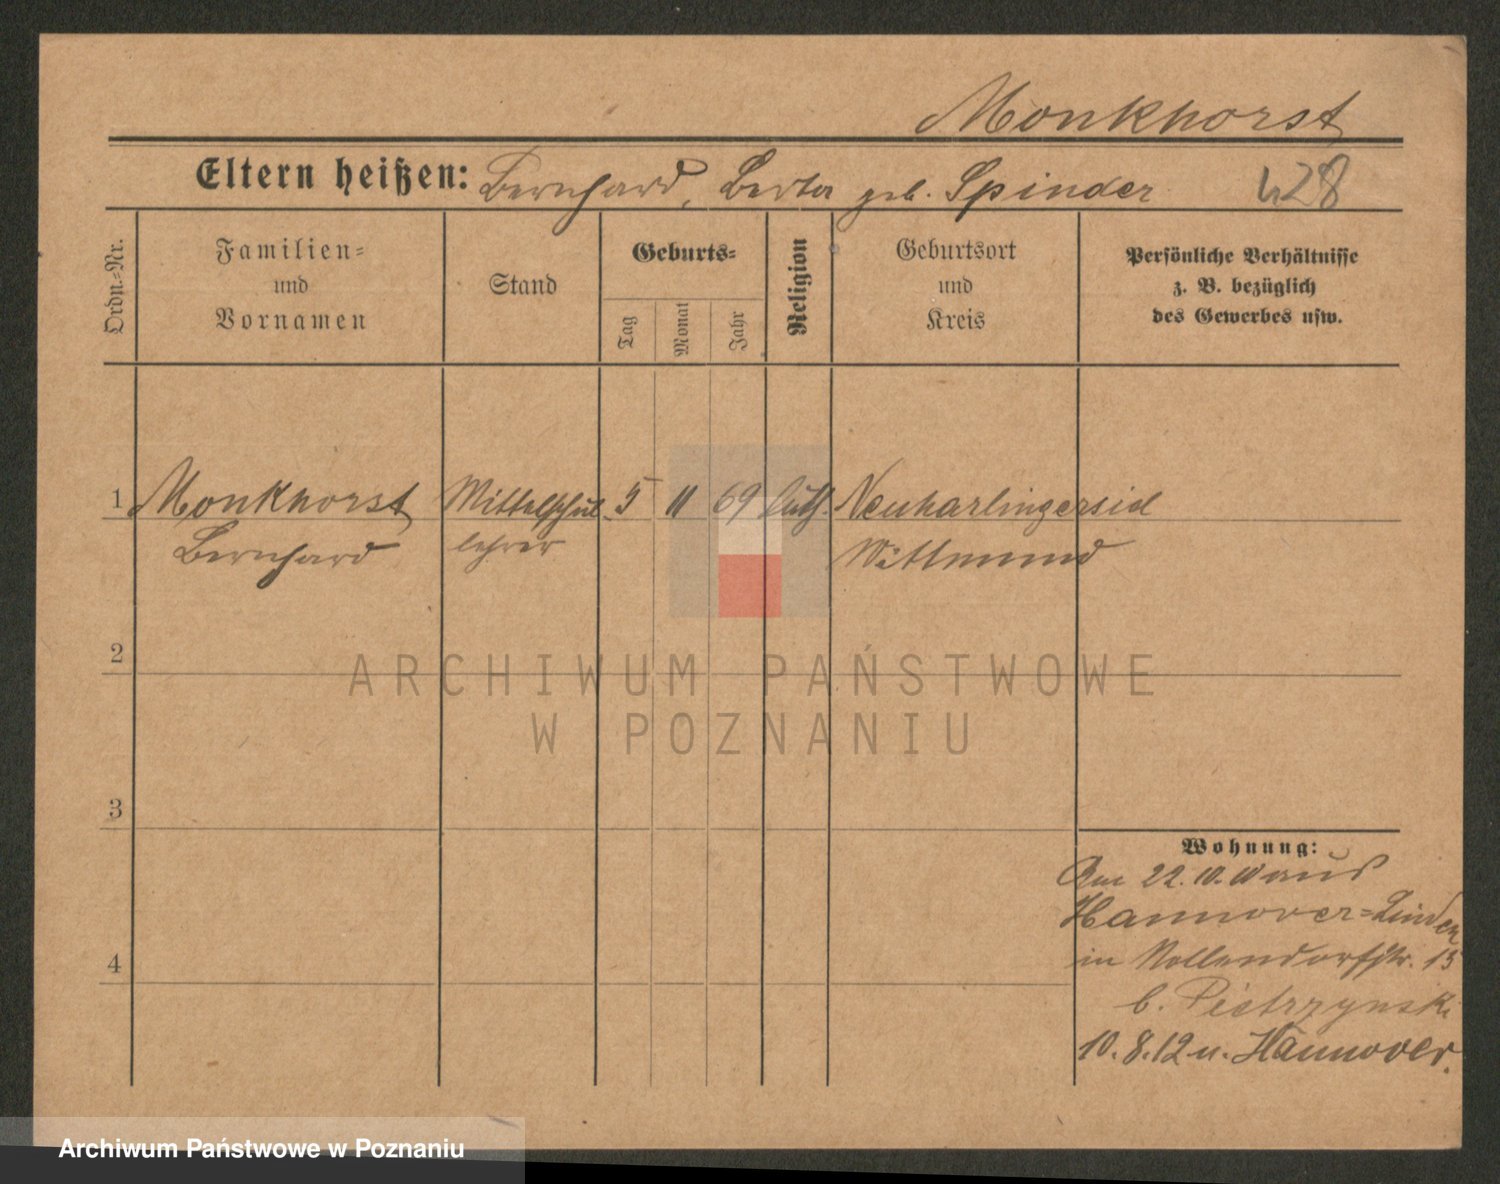 Monkhorst
Eltern heißen: Bernhard, Berta geb. Spinder 428
Ordn.=Nr.
Familien=
und
Vornamen
Stand
Geburts=
Tag
Monat
Jahr
Religion
Geburtsort
und
Kreis
Persönliche Verhältnisse
z. B. bezüglich
des Gewerbes usw.
1 Monkhorst Mittelschul- 5 11 69 luth. Neuharlingersiel
Bernhard lehrer Wittmund
2
ARCHIWUM PAŃSTWOWE
W POZNANIU
3
Wohnung:
Am 22.10.11 aus
Hannover=Linden
4
in Nollendorfstr. 15
b. Pietrzynski
10.8.12 n. Hannover.
Archiwum Państwowe w Poznaniu